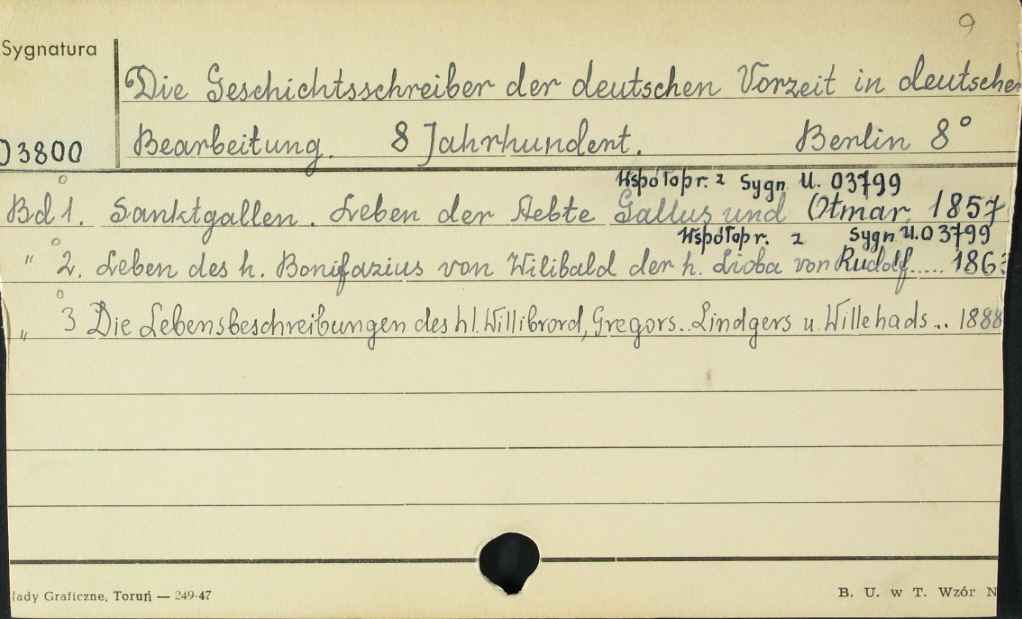 9
Sygnatura
Die Geschichtsschreiber der deutschen Vorzeit in deutscher
03800
Bearbeitung. 8 Jahrhundent. Berlin 8°
Współopr. z Sygn U. 03799
Bd 1. Sanktgallen. Leben der Aebte Gallus und Otmar, 1857
Współopr. z Sygn U.03799
" 2. Leben des h. Bonifazius von Wilibald der h. Lioba von Rudolf..... 1863
" 3 Die Lebensbeschreibungen des hl. Willibrord, Gregors.. Lindgers u Willehads .. 1888
łady Graficzne, Toruń — 249-47
B. U. w T. Wzór N